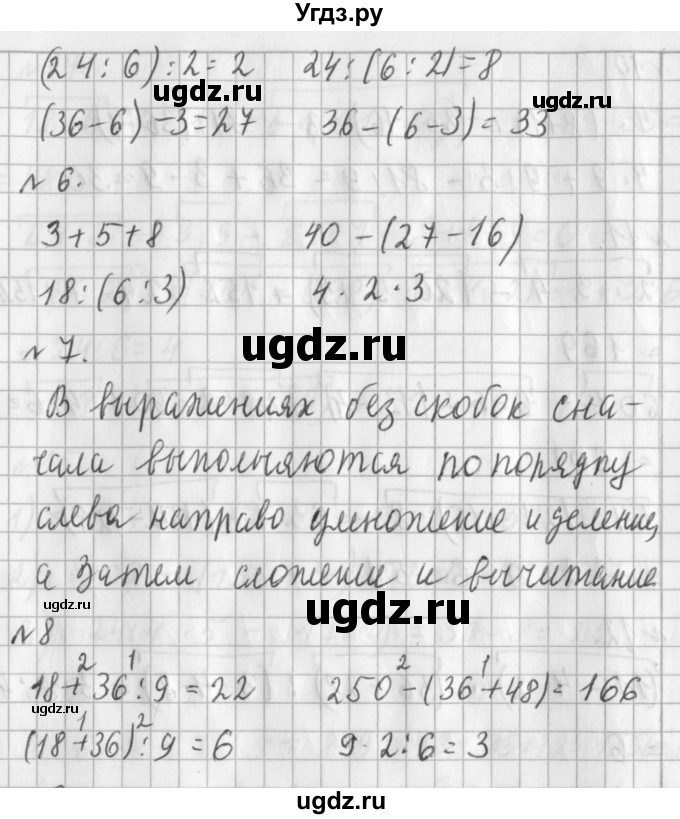 Угдз.ру
(24:6):2=2 24:(6:2)=8
ugdz.ru ugdz.ru
(36-6)-3=27 36-(6-3)=33
№ 6.
3+5+8 40-(27-16)
18:(6:3) 4·2·3
ugdz.ru
№ 7.
В выражениях без скобок сна-
чала выполняются по порядку
слева направо умножение и деление,
а затем сложение и вычитание
ugdz.ru ugdz.ru
№8
2 1 2 1
18+36:9=22 250-(36+48)=166
ugdz.ru
1 2
(18+36):9=6 9·2:6=3
ugdz.ru